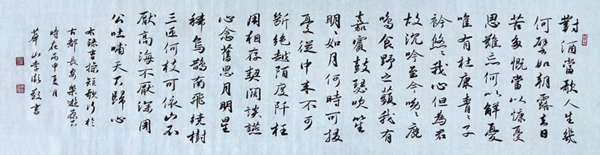 對酒當歌人生幾
何譬如朝露去日
苦多慨當以慷憂
思難忘何以解憂
唯有杜康青青子
衿悠悠我心但為君
故沉吟至今呦呦鹿
鳴食野之蘋我有
嘉賓鼓瑟吹笙
明明如月何時可掇
憂從中來不可
斷絕越陌度阡枉
用相存契闊談讌
心念舊恩月明星
稀烏鵲南飛繞樹
三匝何枝可依山不
厭高海不厭深周
公吐哺天下歸心
曹操短歌行於
古都長安樂遊
時在丙申夏月
華山李書